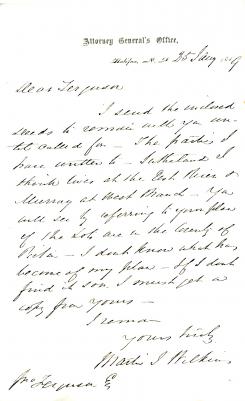 Attorney General's Office,
Halifax, N. S. 25 Jany
Dear Ferguson
I send the enclosed
deeds to remain with you un-
til called for - The parties I
have written to - Sutherland I
think lives at the East River or
Murray at West Branch - You
will see by referring to your plan
if the Lots are in the County of
Pictou - I don't know what has
become of my plan - If I don't
find it soon, I must get a
copy from yours -
I remain
Yours truly
Martin I Wilkins
Ferguson Es